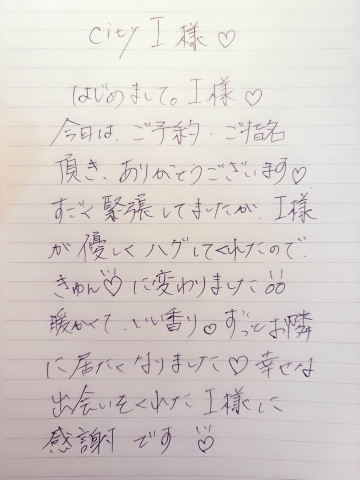 city I 様 ♡
はじめまして。I様 ♡
今日は、ご予約・ご指名
頂き、ありがとうございます♡
すごく緊張してましたが、I様
が優しくハグしてくれたので、
きゅん♡に変わりました
暖かくて、いい香り。ずっとお隣
に居たくなりました♡ 幸せな
出会いをくれた I様に
感謝です♡